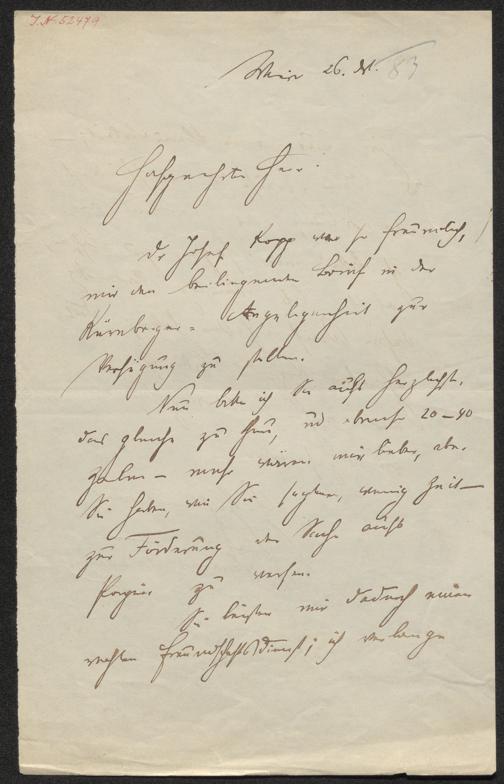 J.N. 52479
Wien 26. Okt. 83
Hochgeehrter Herr!
Dr Josef Kopp war so freundlich,
mir den beiliegenden Brief in der
Kürnberger-Angelegenheit zur
Verfügung zu stellen.
Nun bitte ich Sie aufs herzlichste,
das gleiche zu thun, und ebenfalls 20–40
Zeilen – mehr wären mir lieber, aber
Sie haben, wie Sie sagten, wenig Zeit –
zur Förderung der Sache aufs
Papier zu werfen.
Sie leisten mir dadurch einen
rechten Freundschaftsdienst; ich verlange